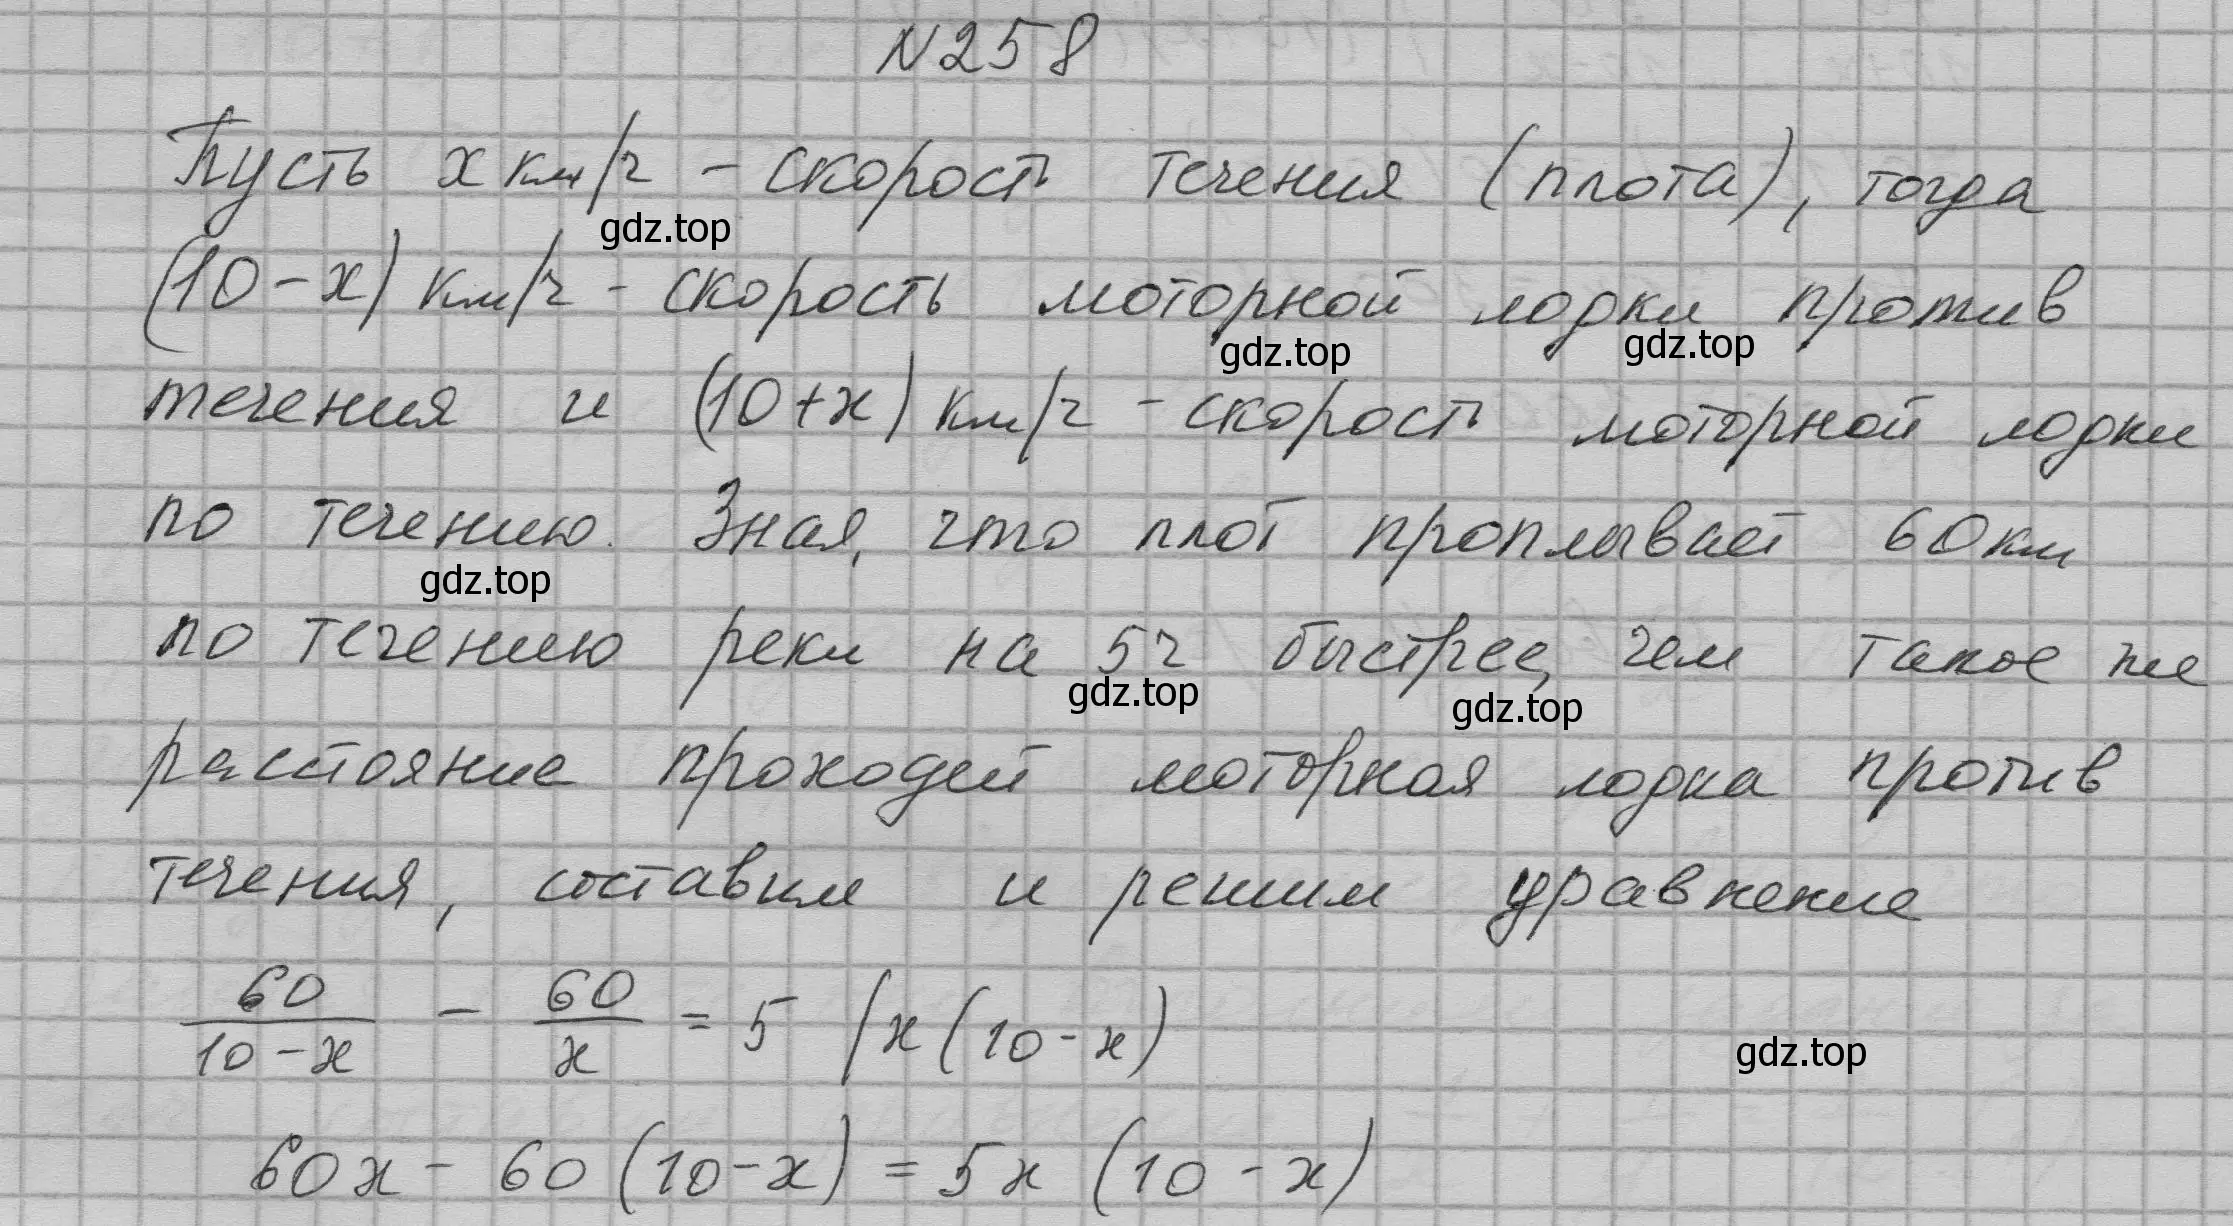 №258
Пусть x км/ч - скорость течения (плота), тогда
gdz.top
(10-x) км/ч - скорость моторной лодки против
gdz.top gdz.top
течения и (10+x) км/ч - скорость моторной лодки
по течению. Зная, что плот проплывает 60 км
gdz.top
по течению реки на 5ч быстрее, чем такое же
gdz.top gdz.top
расстояние проходей моторная лодка против
течения, составим и решим уравнение
60/(10-x) - 60/x = 5 /x(10-x)
gdz.top
60x - 60(10-x) = 5x (10-x)